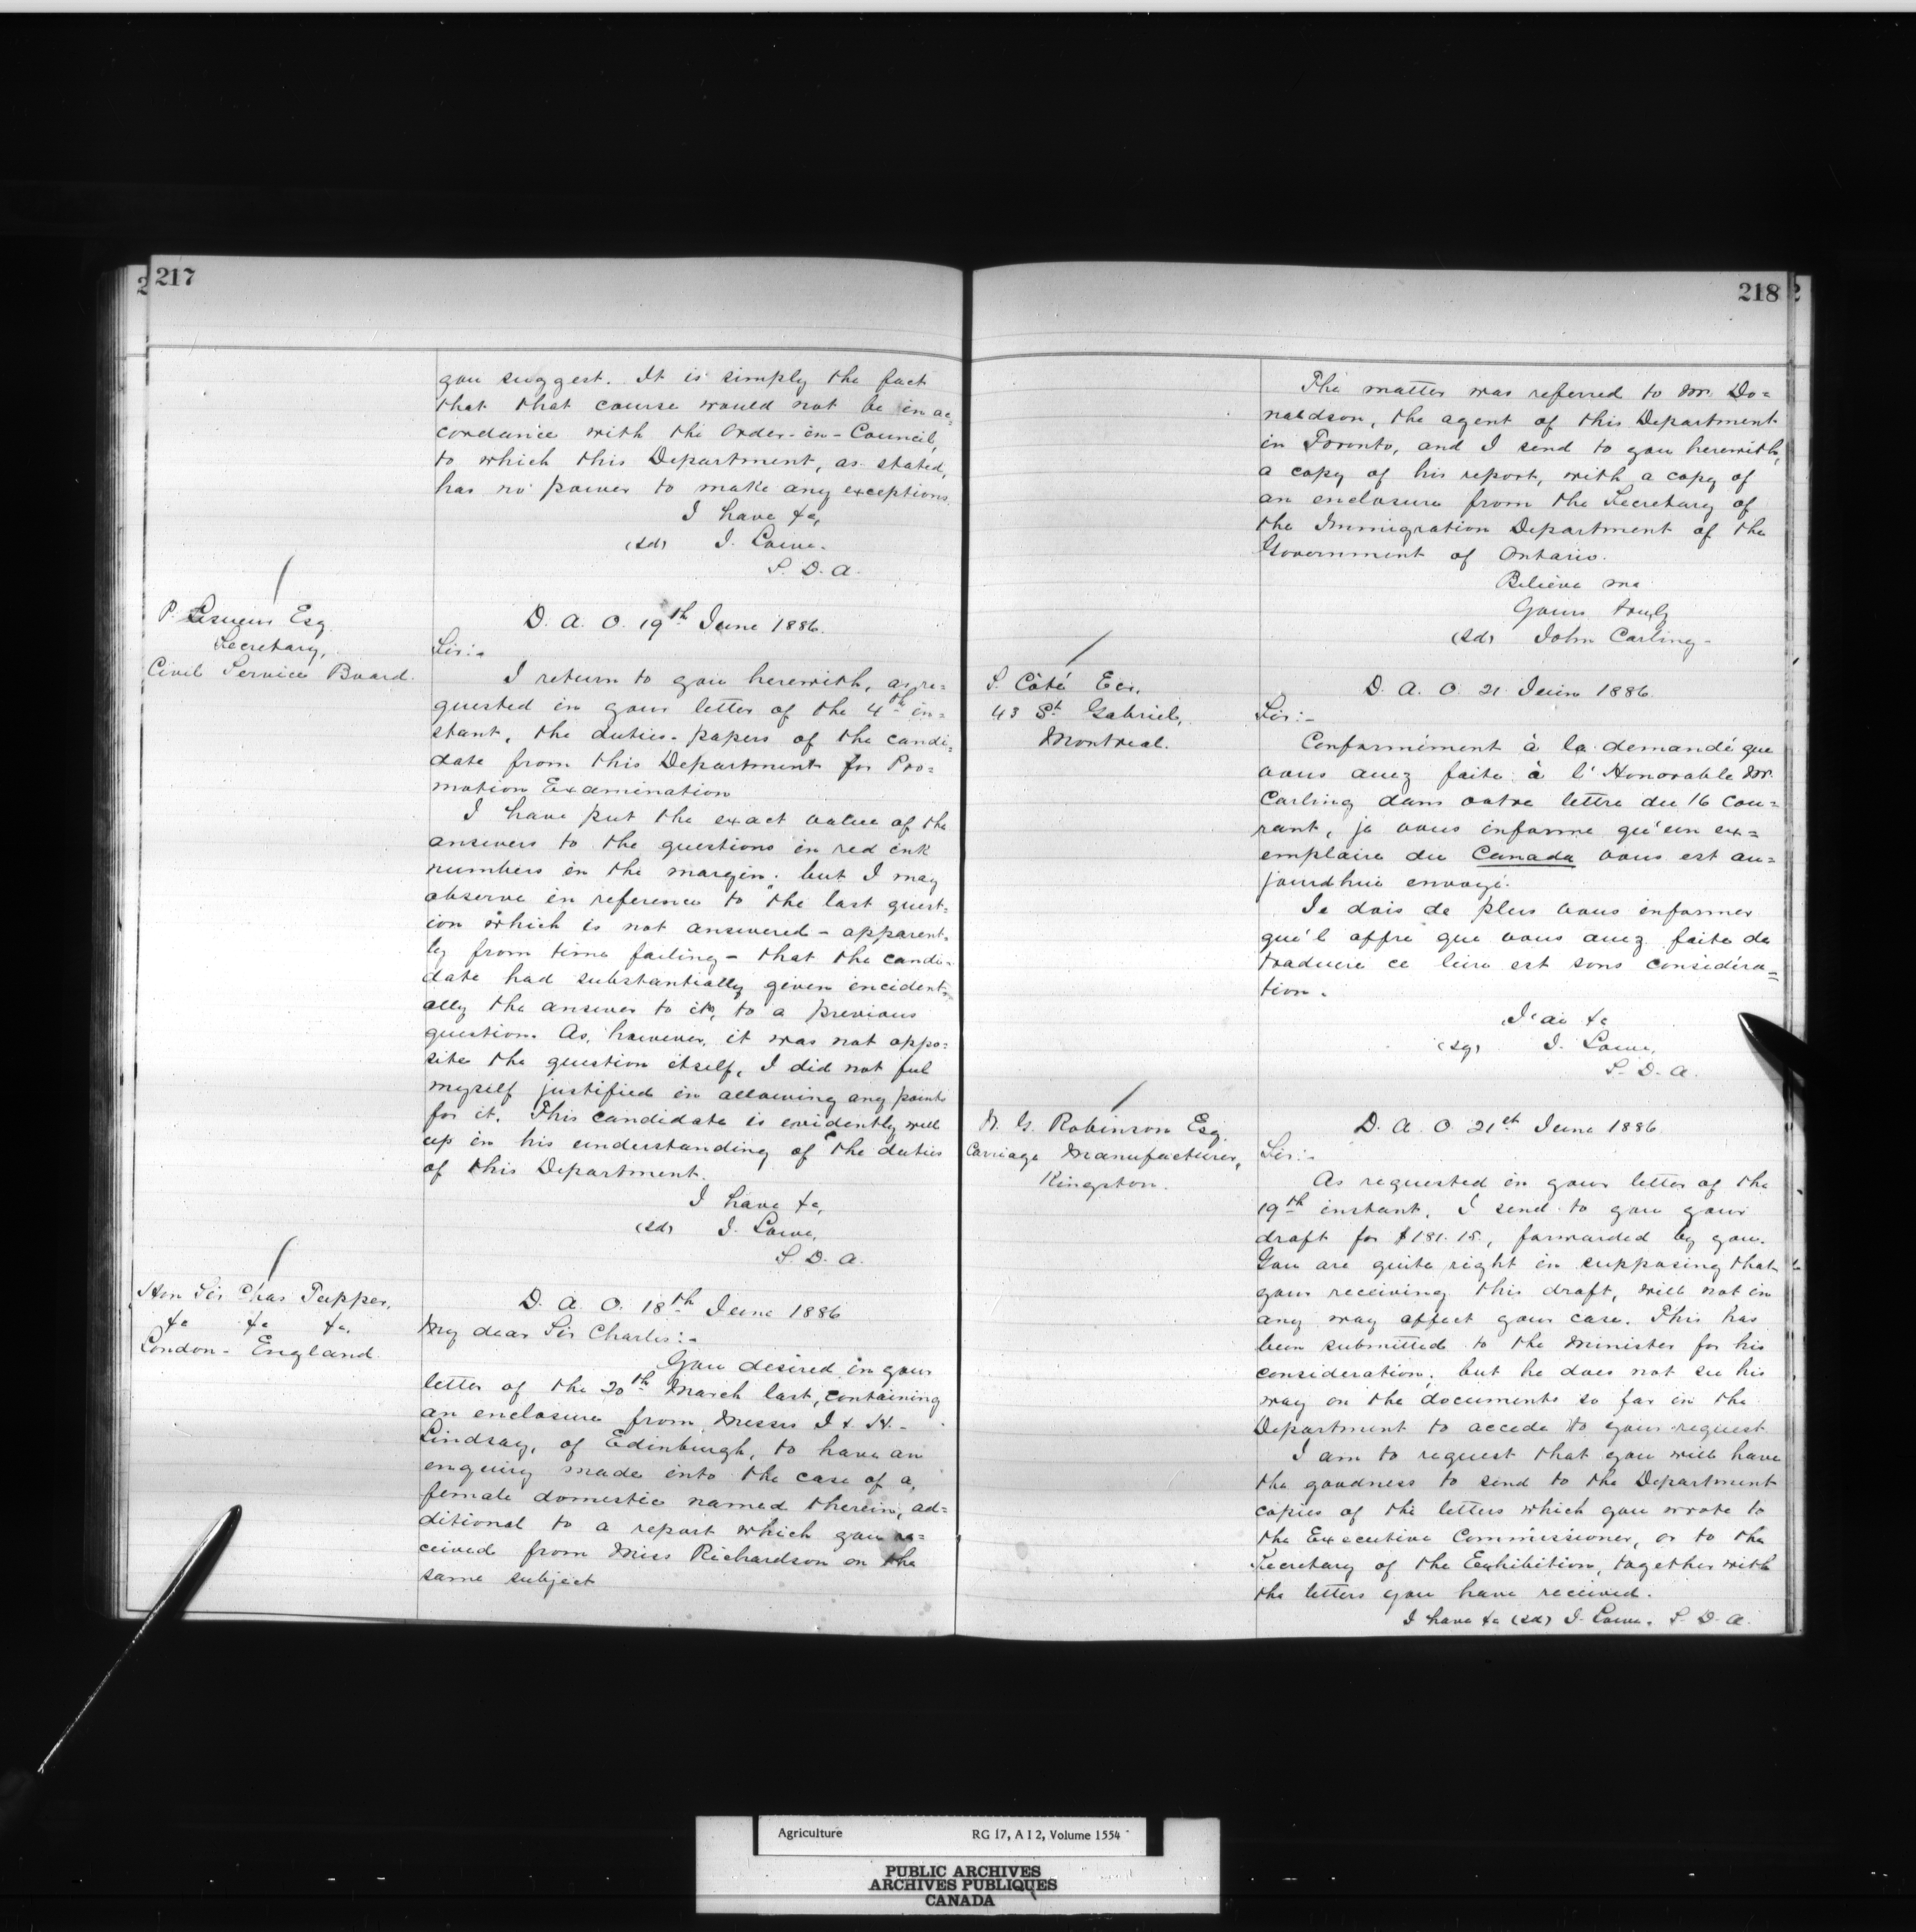 217
you suggest. It is simply the fact
that that course would not be in ac=
cordance with the Order-in-Council,
to which this Department, as stated,
has no power to make any exceptions.
I have &c,
(sd) J. Lowe.
S. D. A.
P. Lesueur Esq.
Secretary,
Civil Service Board.
D. A. O. 19th June 1886.
Sir:-
I return to you herewith, as re=
quested in your letter of the 4th in=
stant, the duties-papers of the candi=
date from this Department for Pro=
motion Examination
I have put the exact value of the
answers to the questions in red ink
numbers in the margin; but I may
observe in reference to the last quest=
ion which is not answered - apparent=
ly from time failing - that the candi=
date had substantially given incident=
ally the answer to it, to a previous
question. As, however, it was not oppo=
site the question itself, I did not feel
myself justified in allowing any points
for it. This candidate is evidently well
up in his understanding of the duties
of this Department.
I have &c,
(sd) J. Lowe,
S. D. A.
Hon Sir Chas Tupper,
&c &c &c,
London - England.
D. A. O. 18th June 1886
My dear Sir Charles:-
You desired in your
letter of the 20th March last, containing
an enclosure from Messrs J & H.
Lindsay, of Edinburgh, to have an
enquiry made into the case of a
female domestic named therein, ad=
ditional to a report which you re=
ceived from Miss Richardson on the
same subject
218
The matter was referred to Mr. Do=
naldson, the agent of this Department
in Toronto, and I send to you herewith,
a copy of his report, with a copy of
an enclosure from the Secretary of
the Immigration Department of the
Government of Ontario.
Believe me
Yours truly
(sd) John Carling-
S. Côté Ecr,
43 St. Gabriel,
Montreal.
D. A. O. 21 Juin 1886.
Sir:-
Conformément à la demande que
vous avez faite à l'Honorable Mr.
Carling dans votre lettre du 16 cou=
rant, je vous informe qu'un ex=
emplaire du Canada vous est au=
jourdhui envoyé.
Je dois de plus vous informer
que l'offre que vous avez faite de
traduire ce livre est sous considéra=
tion.
J'ai &c
(sg) J. Lowe,
S. D. A.
N. G. Robinson Esq.
Carriage Manufacturer,
Kingston.
D. A. O. 21st June 1886.
Sir:-
As requested in your letter of the
19th instant, I send to you your
draft for $181.15, forwarded by you.
You are quite right in supposing that
your receiving this draft, will not in
any way affect your case. This has
been submitted to the Minister for his
consideration; but he does not see his
way on the documents so far in the
Department to accede to your request
I am to request that you will have
the goodness to send to the Department
copies of the letters which you wrote to
the Executive Commissioner, or to the
Secretary of the Exhibition, together with
the letters you have received.
I have &c (sd) J. Lowe. S. D. A.
Agriculture RG 17, A I 2, Volume 1554
PUBLIC ARCHIVES
ARCHIVES PUBLIQUES
CANADA